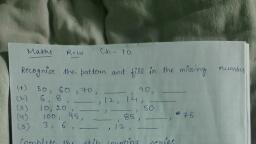 Maths R/w Ch-10
Recognise the pattern and fill in the missing numbers
(1) 50, 60, 70, ___, 90, ___
(2) 6, 8, ___, 12, 14, ___
(3) 10, 20, ___, ___, 50
(4) 100, 95, ___, 85, ___, 75
(5) 3, 6, ___, 12, ___
Complete the skip counting series